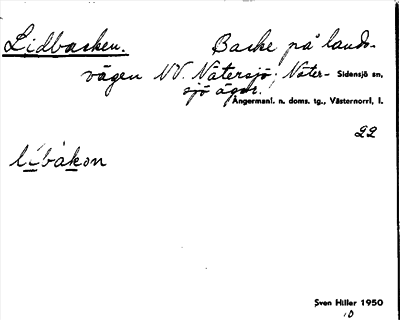 Lidbacken. Backe på lands-
vägen NV. Nätersjö; Näter- Sidensjö sn,
sjö ägor.
Ångermanl. n. doms. tg., Västernorrl, l.
22
líbàkon
Sven Hiller 1950